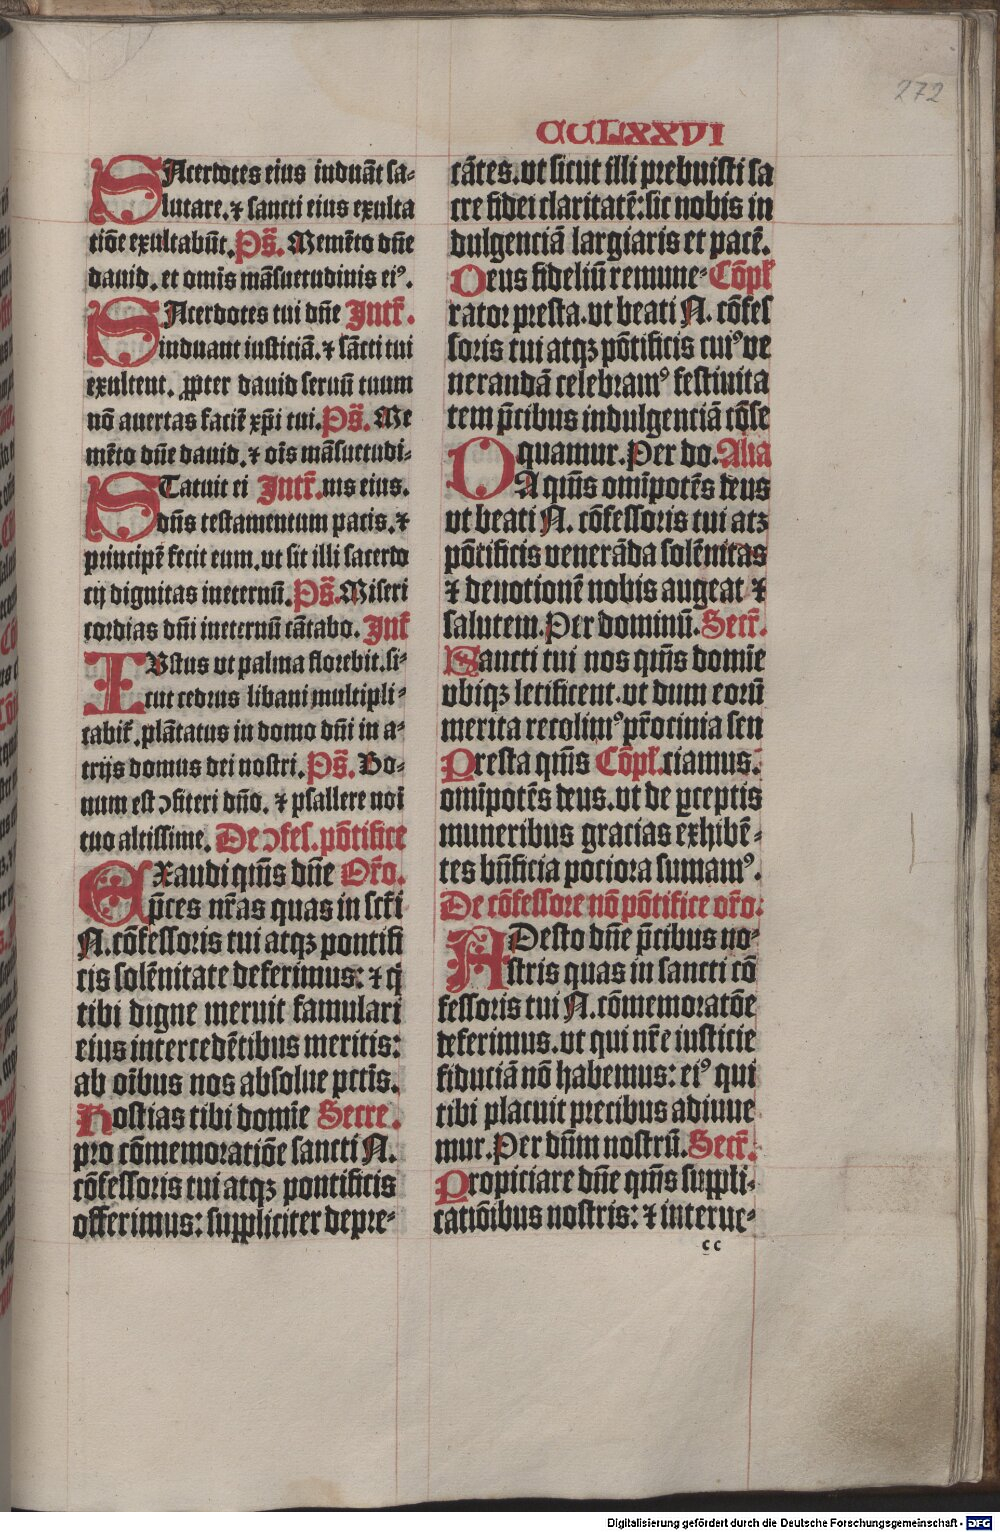 272
CCLXXVI
SAcerdotes eius induāt sa-
lutare. ⁊ sancti eius exulta
tiōe exultabūt. Ps̄. Memēto dn̄e
dauid. et om̄is māsuetudinis ei⁹.
SAcerdotes tui dn̄e Intr̄.
induant iusticiā. ⁊ sācti tui
exultent. ꝓpter dauid seruū tuum
nō auertas faciē xp̄i tui. Ps̄. Me
mēto dn̄e dauid. ⁊ oīs māsuetudi-
STatuit ei Intr̄. nis eius.
dn̄s testamentum pacis. ⁊
principē fecit eum. vt sit illi sacerto
cij dignitas ineternū. Ps̄. Miseri
cordias dn̄i ineternū cātabo. Intr̄
IVstus vt palma florebit. si-
cut cedrus libani multipli-
cabit̄. plātatus in domo dn̄i in a-
trijs domus dei nostri. Ps̄. Bo-
num est ↄfiteri dn̄o. ⁊ psallere noī
tuo altissime. De ↄfes. pōtifice
EXaudi qm̄s dn̄e Or̄o.
p̄ces nr̄as quas in sct̄i
N. cōfessoris tui atqꝫ pontifi
cis solēnitate deferimus: ⁊ q̇
tibi digne meruit famulari
eius intercedētibus meritis:
ab oībus nos absolue pctīs.
Hostias tibi domīe Secre.
pro cōmemoratiōe sancti N.
cōfessoris tui atqꝫ pontificis
offerimus: suppliciter depre-
cātes. vt sicut illi prebuisti sa
cre fidei claritatē: sic nobis in
dulgenciā largiaris et pacē.
Deus fideliū remune- Cōpl̄
rator presta. vt beati N. cōfes
soris tui atqꝫ pōtificis cui⁹ ve
nerandā celebram⁹ festiuita
tem p̄cibus indulgenciā cōse
quamur. Per do. Alia
DA qm̄s om̄ipotēs deus
vt beati N. cōfessoris tui atꝫ
pōtificis venerāda solēnitas
⁊ deuotionē nobis augeat ⁊
salutem. Per dominū. Secr̄.
Sancti tui nos qm̄s domīe
vbiqꝫ letificent. vt dum eorū
merita recolim⁹ pr̄ocinia sen
Presta qm̄s Cōpl̄. ciamus.
om̄ipotēs deus. vt de ꝑceptis
muneribus gracias exhibē-
tes bn̄ficia pociora sumam⁹.
De cōfessore nō pōtifice or̄o.
ADesto dn̄e p̄cibus no-
stris quas in sancti cō
fessoris tui N. cōmemoratōe
deferimus. vt qui nr̄e iusticie
fiduciā nō habemus: ei⁹ qui
tibi placuit precibus adiuue
mur. Per dn̄m nostrū. Secr̄.
Propiciare dn̄e qm̄s suppli-
catiōibus nostris: ⁊ interue-
cc
Digitalisierung gefördert durch die Deutsche Forschungsgemeinschaft - DFG